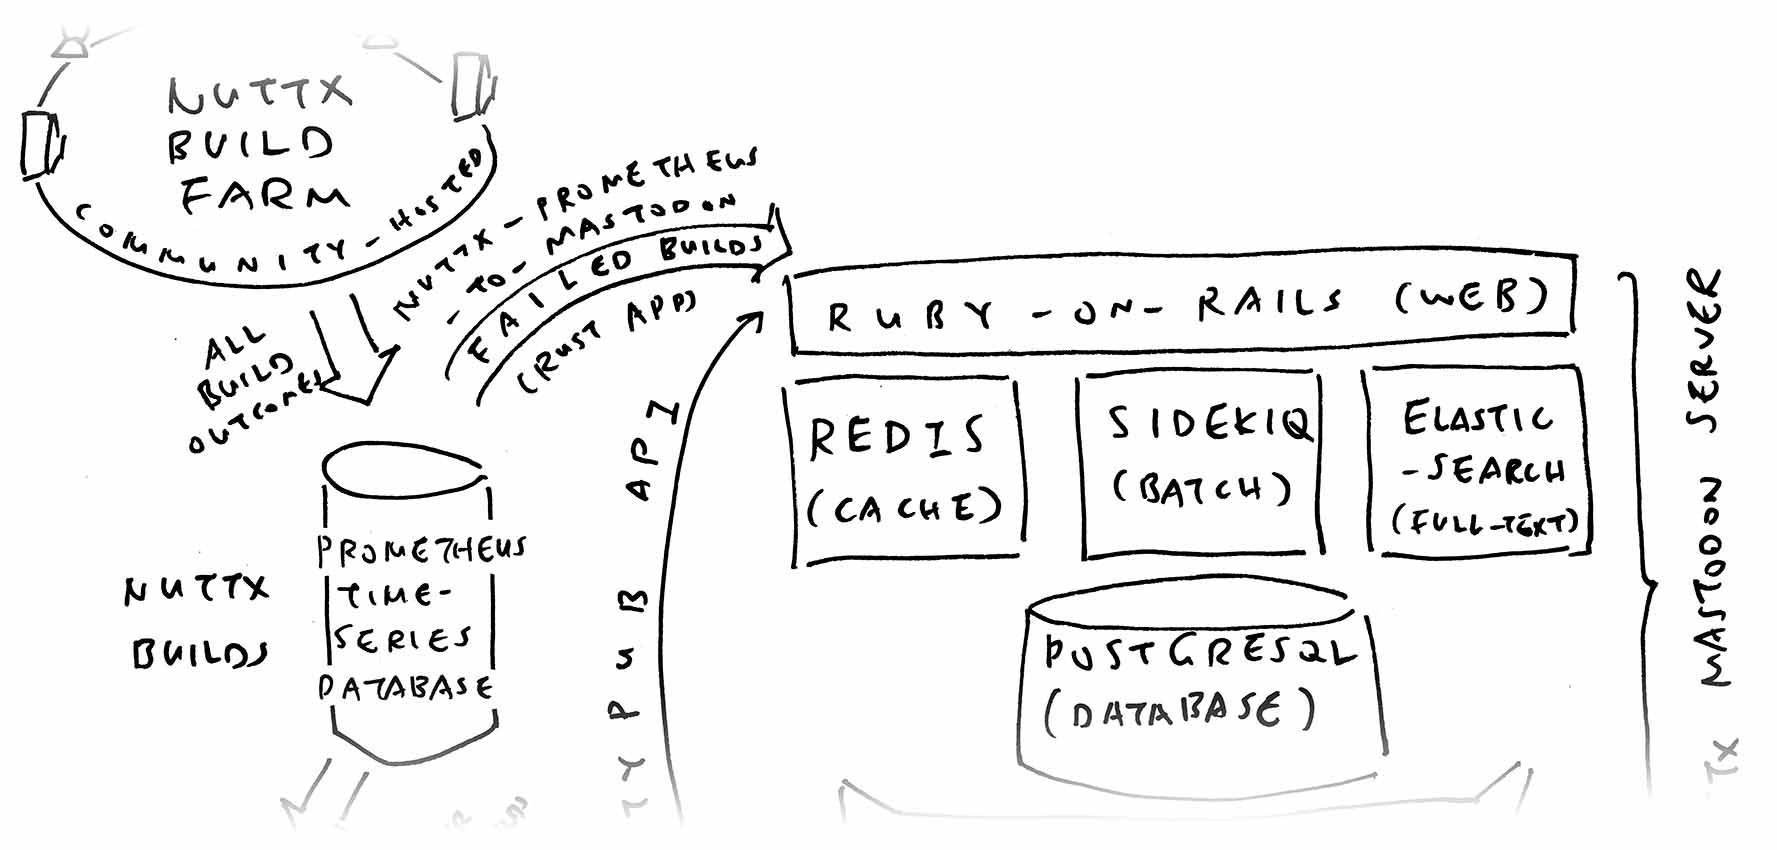 NUTTX
BUILD
FARM
COMMUNITY-HOSTED
NUTTX-PROMETHEUS
-TO-MASTODON
FAILED BUILDS
(RUST APP)
ALL
BUILD
OUTCOMES
PROMETHEUS
TIME-
SERIES
DATABASE
NUTTX
BUILDS
TYPUB API
RUBY-ON-RAILS (WEB)
REDIS
(CACHE)
SIDEKIQ
(BATCH)
ELASTIC
-SEARCH
(FULL-TEXT)
POSTGRESQL
(DATABASE)
TX MASTODON SERVER